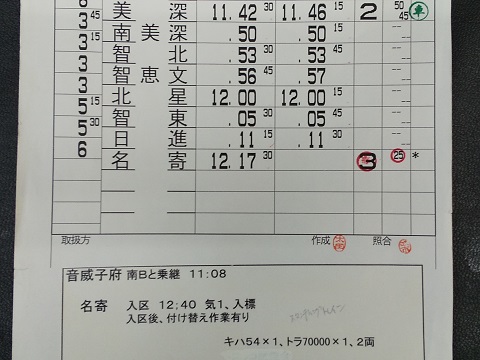 3 45 美深 11.42 30 11.46 15 2 50 45
3 15 南美深 .50 .50 15
3 智北 .53 30 .53 45
3 智恵文 .56 45 .57
5 15 北星 12.00 12.00 15
5 30 智東 .05 30 .05 45
6 日進 .11 15 .11 30
名寄 12.17 30 3 25 *
取扱方 作成 照合
音威子府 南Bと乗継 11:08
名寄 入区 12;40 気1、入標
入区後、付け替え作業有り
キハ54×1、トラ70000×1、2両